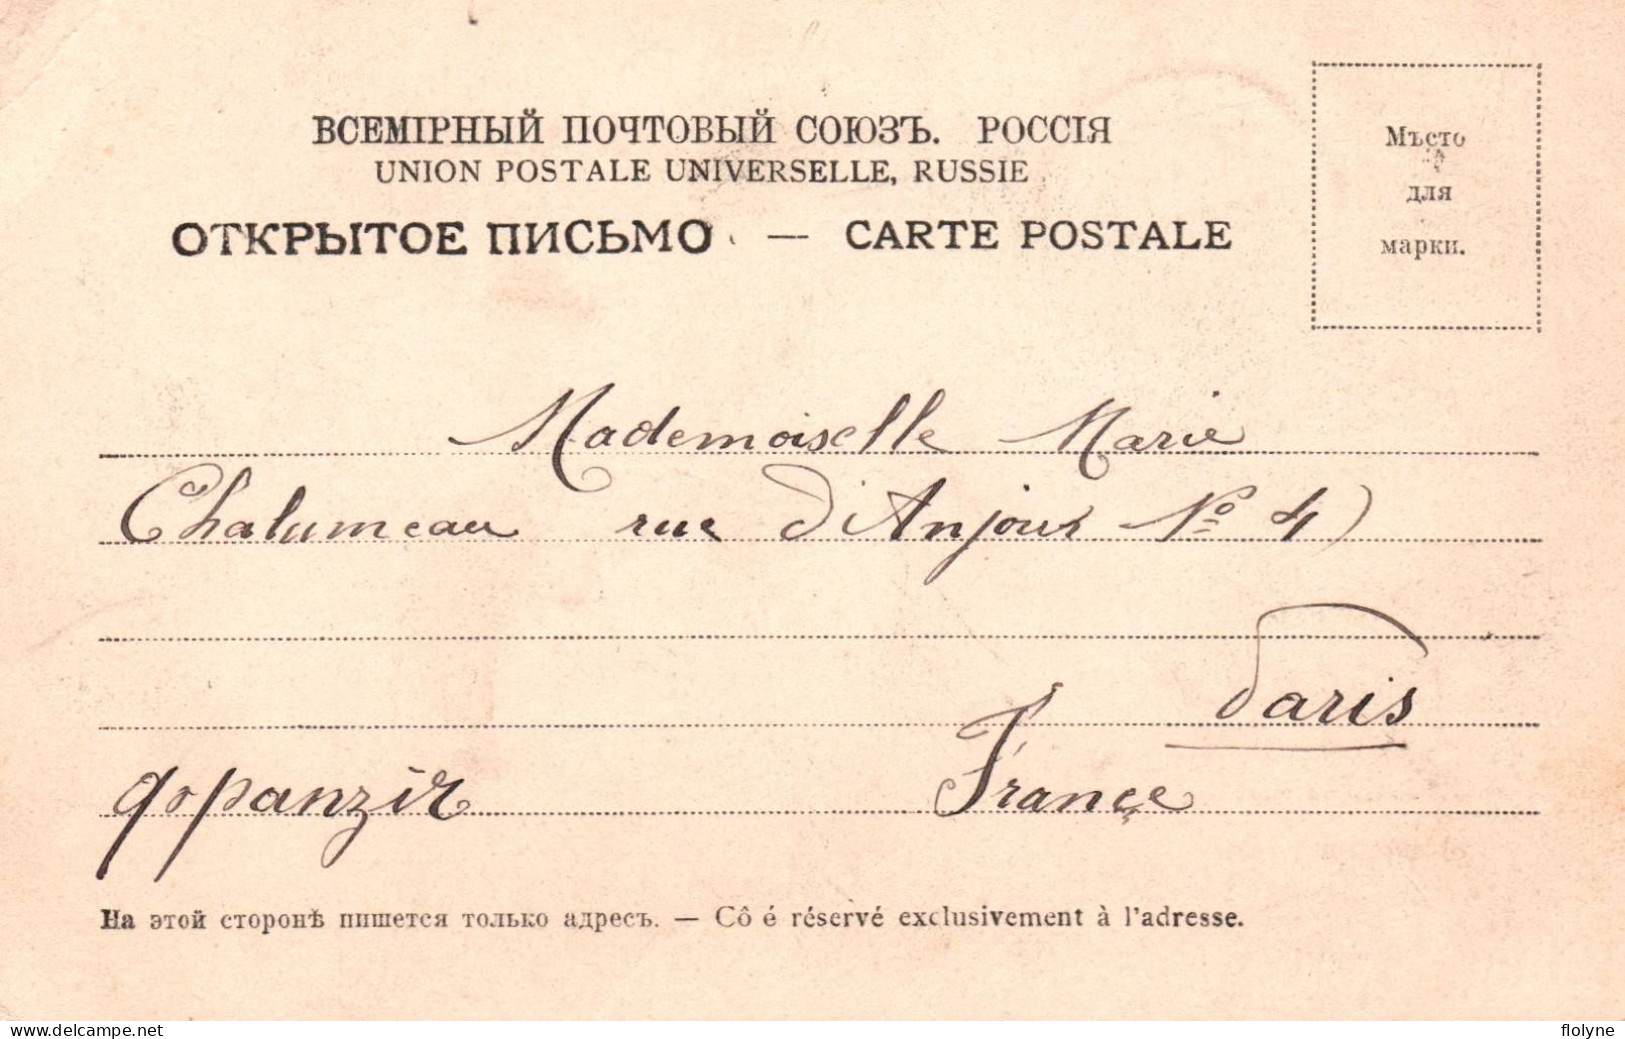 ВСЕМІРНЫЙ ПОЧТОВЫЙ СОЮЗЪ. РОССІЯ
UNION POSTALE UNIVERSELLE, RUSSIE
ОТКРЫТОЕ ПИСЬМО — CARTE POSTALE
Мѣсто
для
марки.
Mademoiselle Marie
Chalumeau rue d'Anjou Nº 4
Paris
France
На этой сторонѣ пишется только адресъ. — Cô é réservé exclusivement à l'adresse.
www.delcampe.net
flolyne